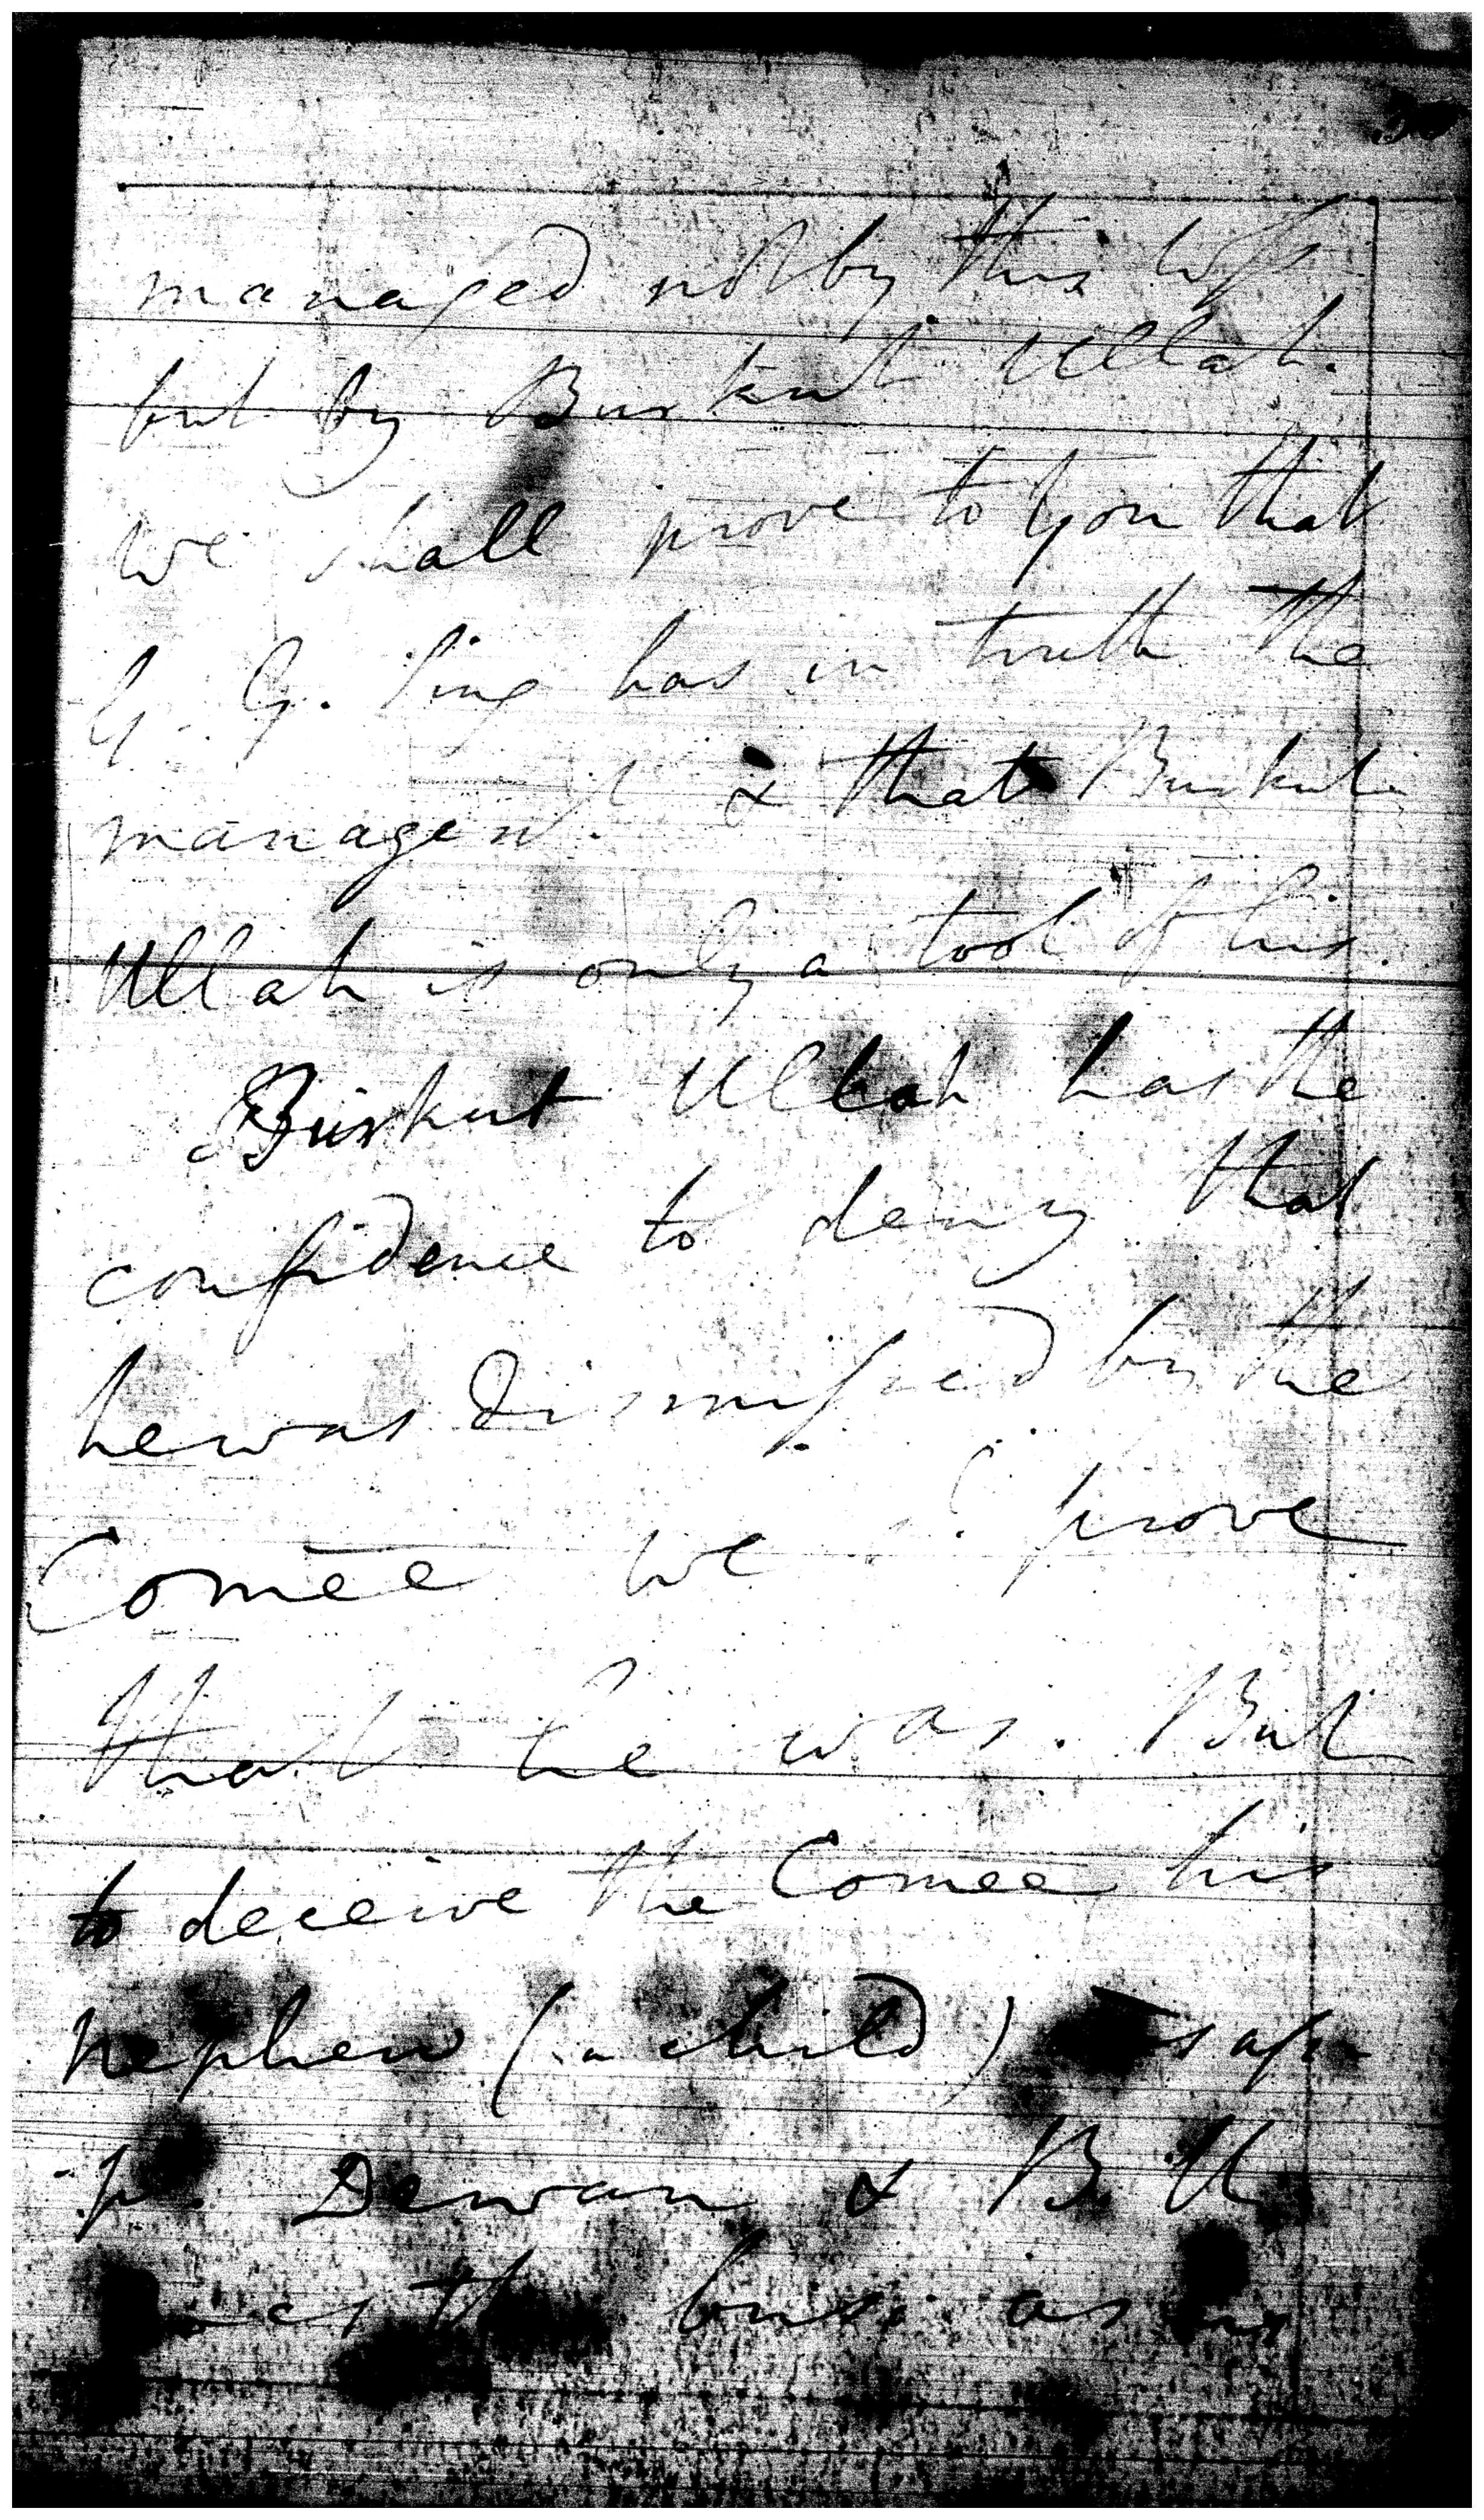 managed not by this
but by Burkut Ullah.
we shall prove to you that
G. G. Sing has in truth the
managemt. & that Burkut
Ullah is only a tool of his.
Burkut Ullah has the
confidence to deny that
he was dismissed by the
Comee we prove
that he was. But
to deceive the Comee his
nephew (a child) is
Dewan & B. U.
the busi. as